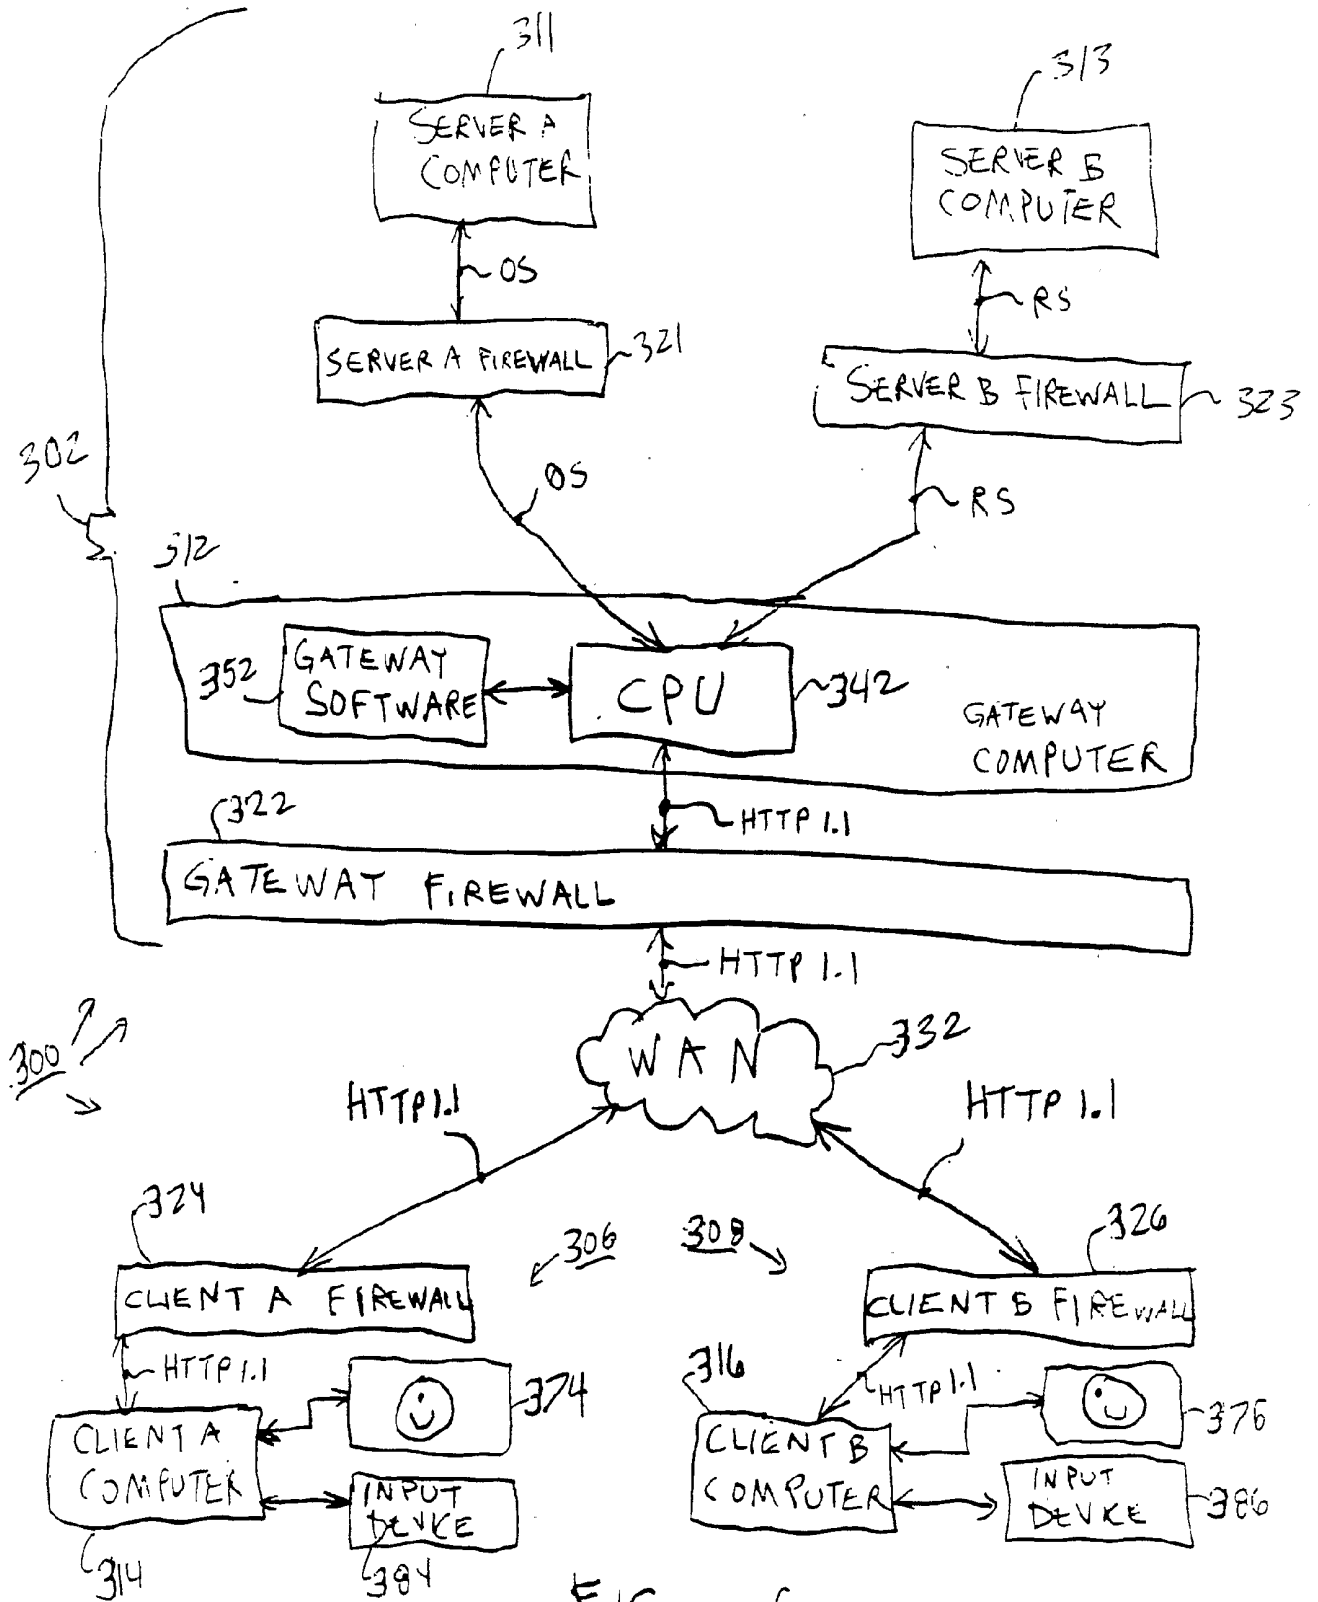 311
313
SERVER A
COMPUTER
SERVER B
COMPUTER
OS
RS
SERVER A FIREWALL
321
SERVER B FIREWALL
323
302
OS
RS
312
GATEWAY
SOFTWARE
352
CPU
342
GATEWAY
COMPUTER
322
HTTP 1.1
GATEWAY FIREWALL
HTTP 1.1
WAN
332
300
HTTP 1.1
HTTP 1.1
324
306
308
326
CLIENT A FIREWALL
CLIENT B FIREWALL
HTTP 1.1
374
316
HTTP 1.1
376
CLIENT A
COMPUTER
CLIENT B
COMPUTER
INPUT
DEVICE
INPUT
DEVICE
386
314
384